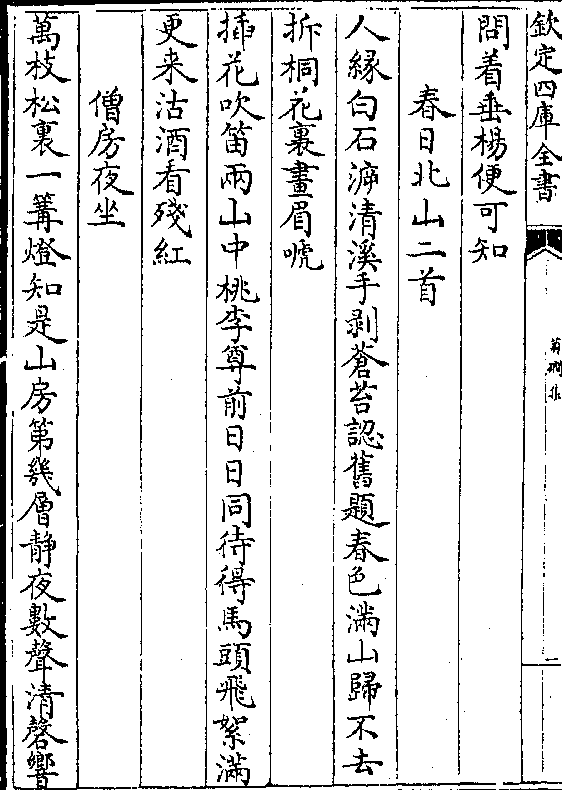 欽定四庫全書
問着垂楊便可知
春日北山二首
人緣白石漈清溪手剥蒼苔認舊題春色滿山歸不去
拆桐花裏畫眉啼
揷花吹笛兩山中桃李尊前日日同待得馬頭飛絮滿
更来沽酒看殘紅
僧房夜坐
萬枝松裏一篝燈知是山房第幾層靜夜數聲清磬響